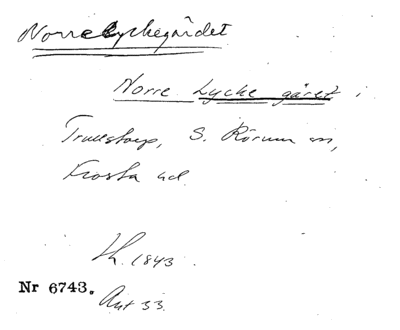 Norrelyckegärdet
Norre Lycke gäret i
Trulstorp, S. Rörum sn,
Frosta hd.
Lh. 1843
Nr 6743. Akt 33